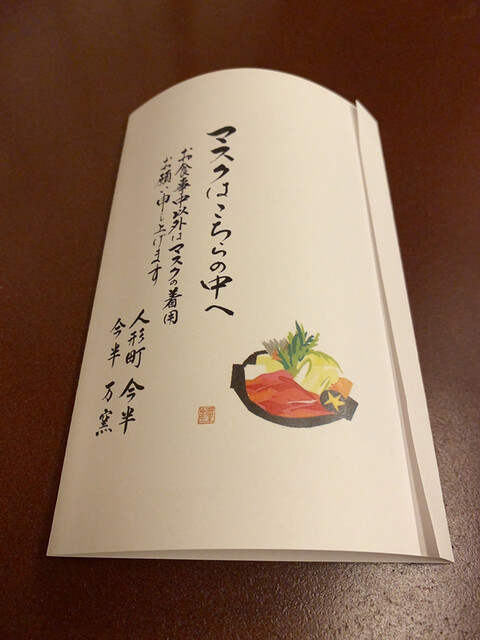 マスクはこちらの中へ
お食事中以外はマスクの着用
お願い申し上げます
人形町 今半
今半 万窯